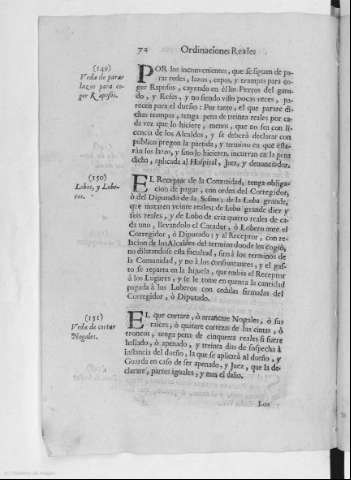 72 Ordinaciones Reales
(149)
Veda de parar
lazos para co-
ger Raposos.
POR los inconvenientes, que se siguen de pa-
rar redes, lazos, cepos, y trampas para co-
ger Raposos, cayendo en ellos Perros del gana-
do, y Reses, y no siendo visto pocas veces, pa-
recen para el dueño: Por tanto, el que parare di-
chas trampas, tenga pena de treinta reales por ca-
da vez que lo hiciere, menos, que no sea con li-
cencia de los Alcaldes, y se deberá declarar con
publico pregon la partida, y termino en que esta-
rán los lazos, y sino lo hicieren, incurran en la pena
dicha, aplicada al Hospital, Juez, y denunciador.
(150)
Lobos, y Lobe-
ros.
EL Receptor de la Comunidad, tenga obliga-
cion de pagar, con orden del Corregidor,
ò del Diputado de la Sesma, de la Loba grande,
que mataren veinte reales; de Lobo grande diez y
seis reales, y de Lobo de cria quatro reales de ca-
da uno, llevandolo el Cazador, ò Lobero ante el
Corregidor, ò Diputado; y al Receptor, con re-
lacion de los Alcaldes del termino donde los cogiò,
no dilatandose esta facultad, fuera de los terminos de
la Comunidad, y no à los confrontantes, y el gas-
to se reparta en la hijuela, que embia el Receptor
à los Lugares, y se le tome en quenta la cantidad
pagada à los Loberos con cedulas firmadas del
Corregidor, ò Diputado.
(151)
Veda de cortar
Nogales.
EL que cortare, ò arrancare Nogales, ò sus
raices, ò quitare cortezas de las cintas, ò
troncos, tenga pena de cinquenta reales si fuere
hallado, ò apenado, y treinta dias de sospecha à
instancia del dueño, la que se aplicarà al dueño, y
Guarda en caso de ser apenado, y Juez, que la de-
clarare, partes iguales, y mas el daño.
Los